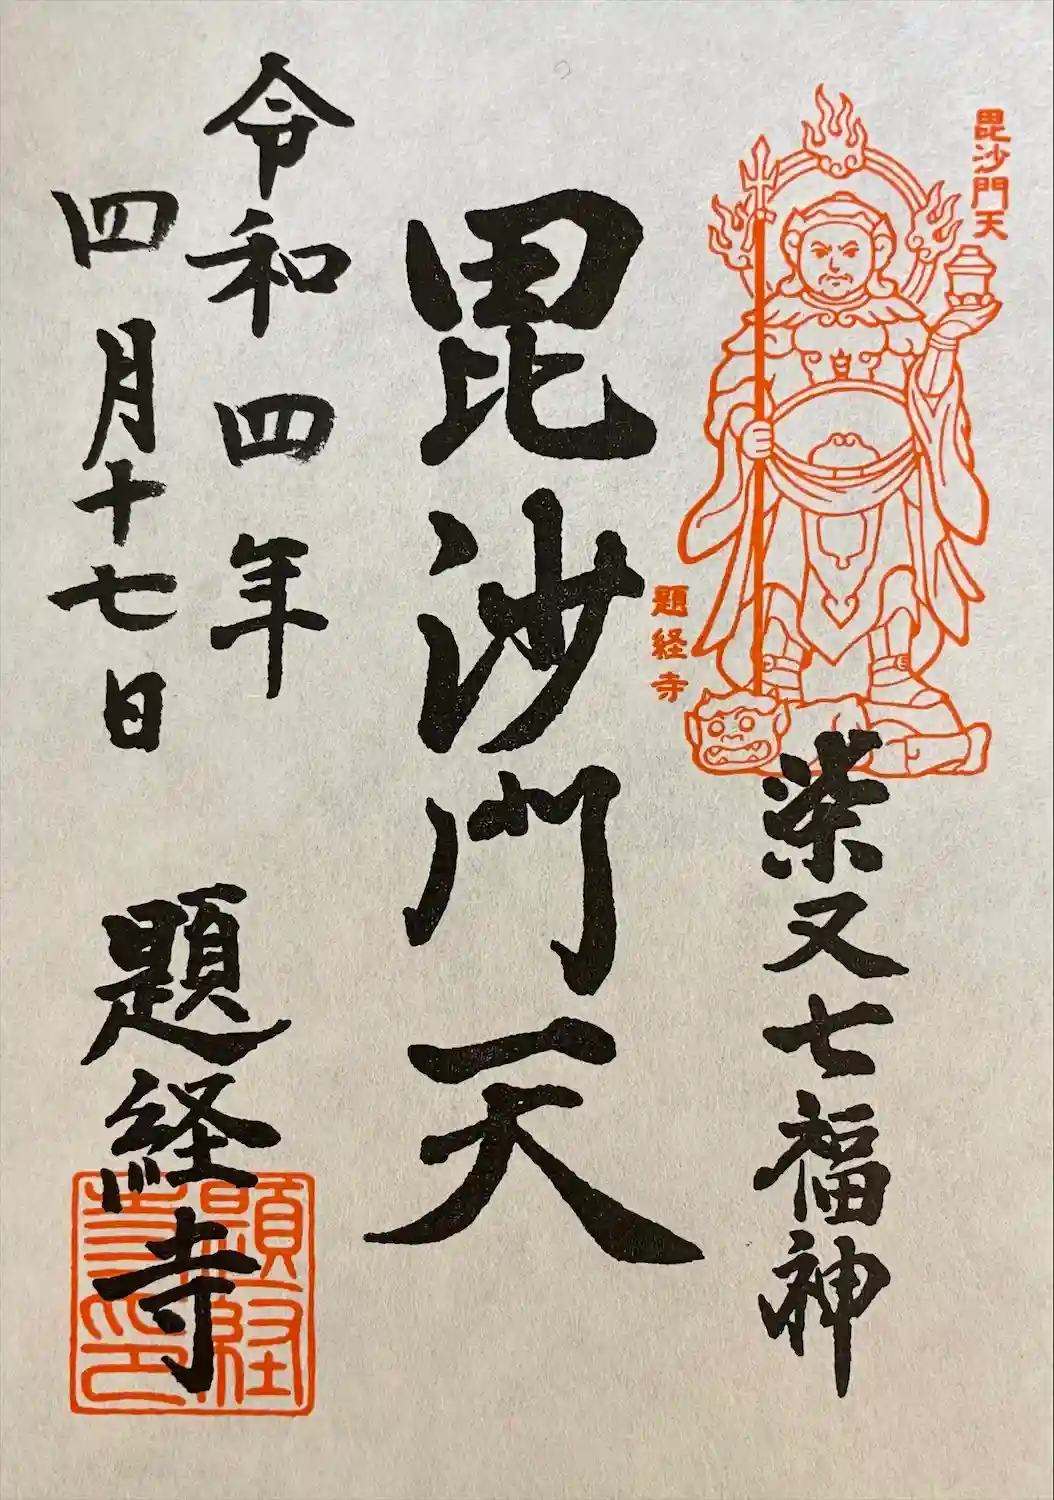 毘沙門天
題経寺
柴又七福神
毘沙門天
令和四年
四月十七日
題経寺
題経寺印